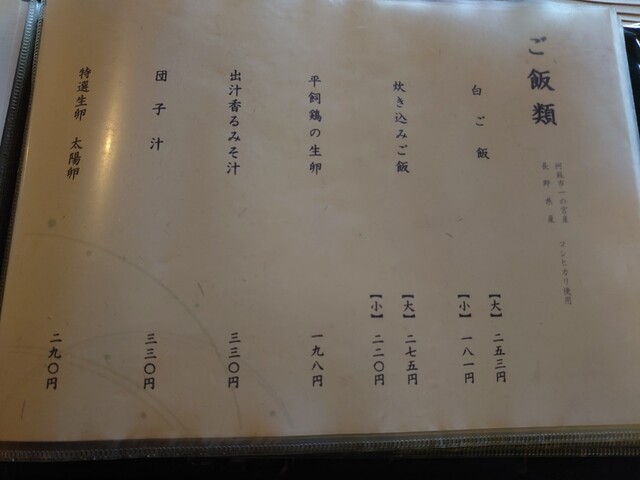 ご飯類
阿蘇市一の宮産 コシヒカリ使用
長野県産
白ご飯
【大】 二五三円
【小】 一八一円
炊き込みご飯
【大】 二七五円
【小】 二二〇円
平飼鶏の生卵 一九八円
出汁香るみそ汁 三三〇円
団子汁 三三〇円
特選生卵 太陽卵 二九〇円